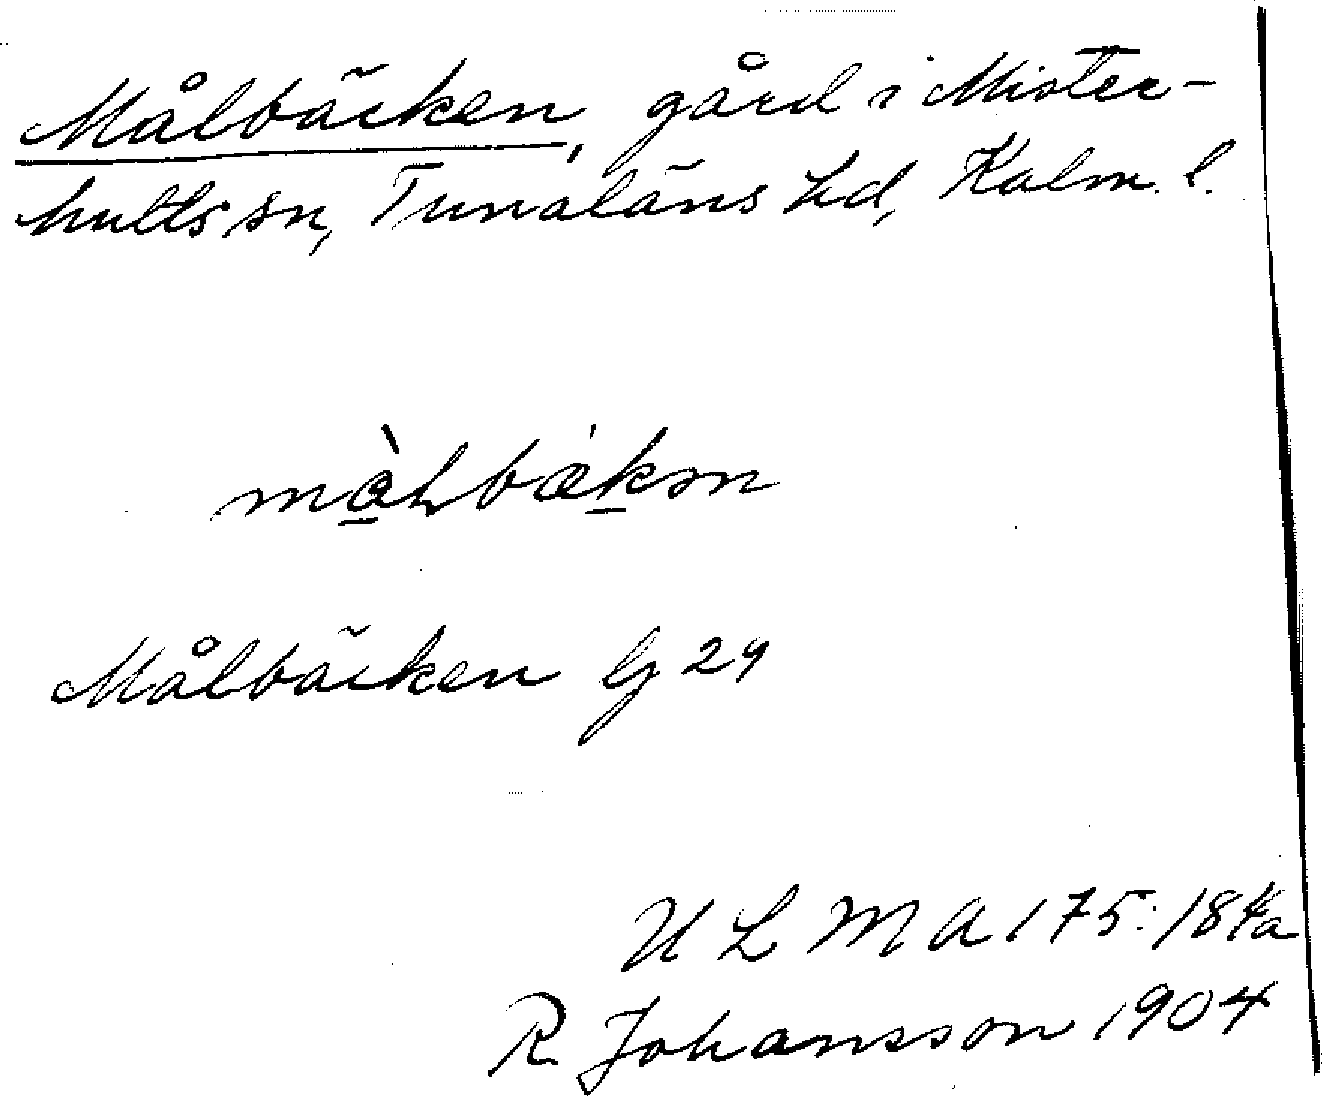 Målbäcken, gård i Mister-
hults sn, Tunaläns hd, Kalm. l.
màlbæ̀kən
Målbäcken G 29
U L M A 175:18
R. Johansson 1904